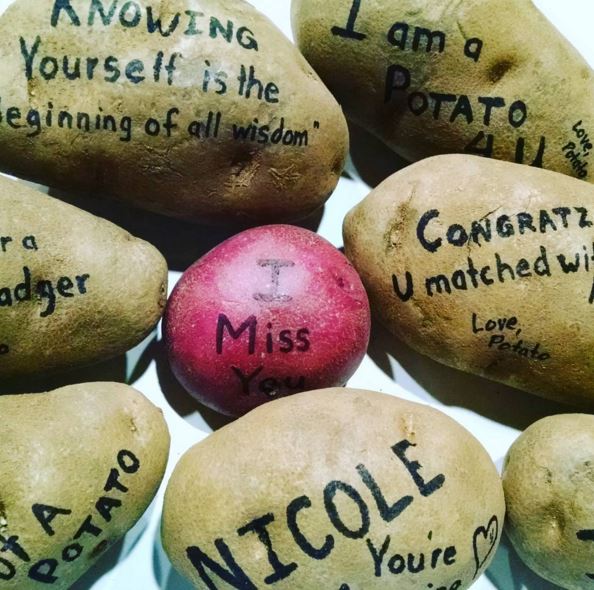 KNOWING
Yourself is the
Beginning of all wisdom"
I am a
POTATO
4 U
Love,
Potato
r a
adger
o
CONGRATZ
U matched wi
Love,
Potato
I
Miss
You
Of A
POTATO
NICOLE
You're